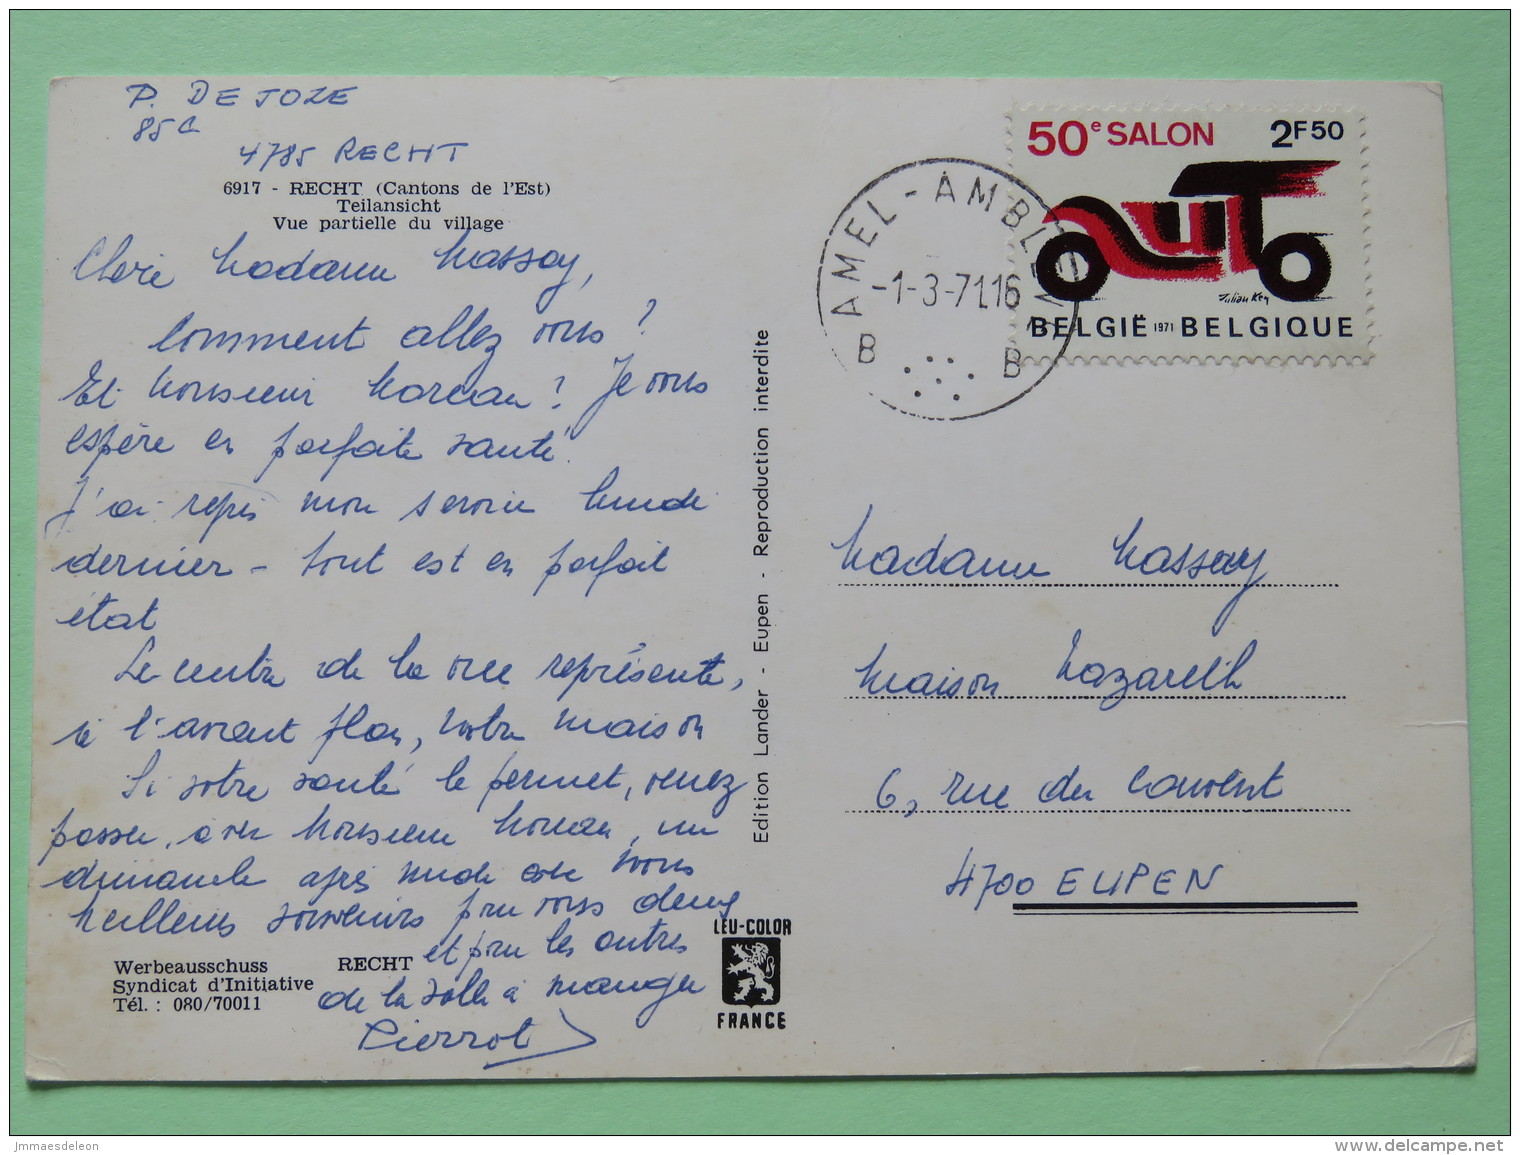 P. DEJOZE
85a
4785 RECHT
6917 - RECHT (Cantons de l'Est)
Teilansicht
Vue partielle du village
Chère Madame Massay,
Comment allez vous ?
Et Monsieur Moreau ? Je vous
espère en parfaite santé.
J'ai repris mon service lundi
dernier - tout est en parfait
état
Le centre de la vue représente,
à l'avant plan, notre maison
Si votre santé le permet, venez
passer, avec Monsieur Moreau, un
dimanche après midi chez nous
Meilleurs souvenirs pour vous deux
et pour les autres
de la salle à manger
Pierrot
Werbeausschuss RECHT
Syndicat d'Initiative
Tél. : 080/70011
Edition Lander - Eupen - Reproduction interdite
LEU-COLOR
FRANCE
AMEL-AMBLEVE
-1-3-71 16
B B
50e SALON 2F50
AUTO
Julian Key
BELGIË 1971 BELGIQUE
Madame Massay
Maison Nazareth
6, rue du Couvent
4700 EUPEN
jmmaesdeleon
delcampe.net